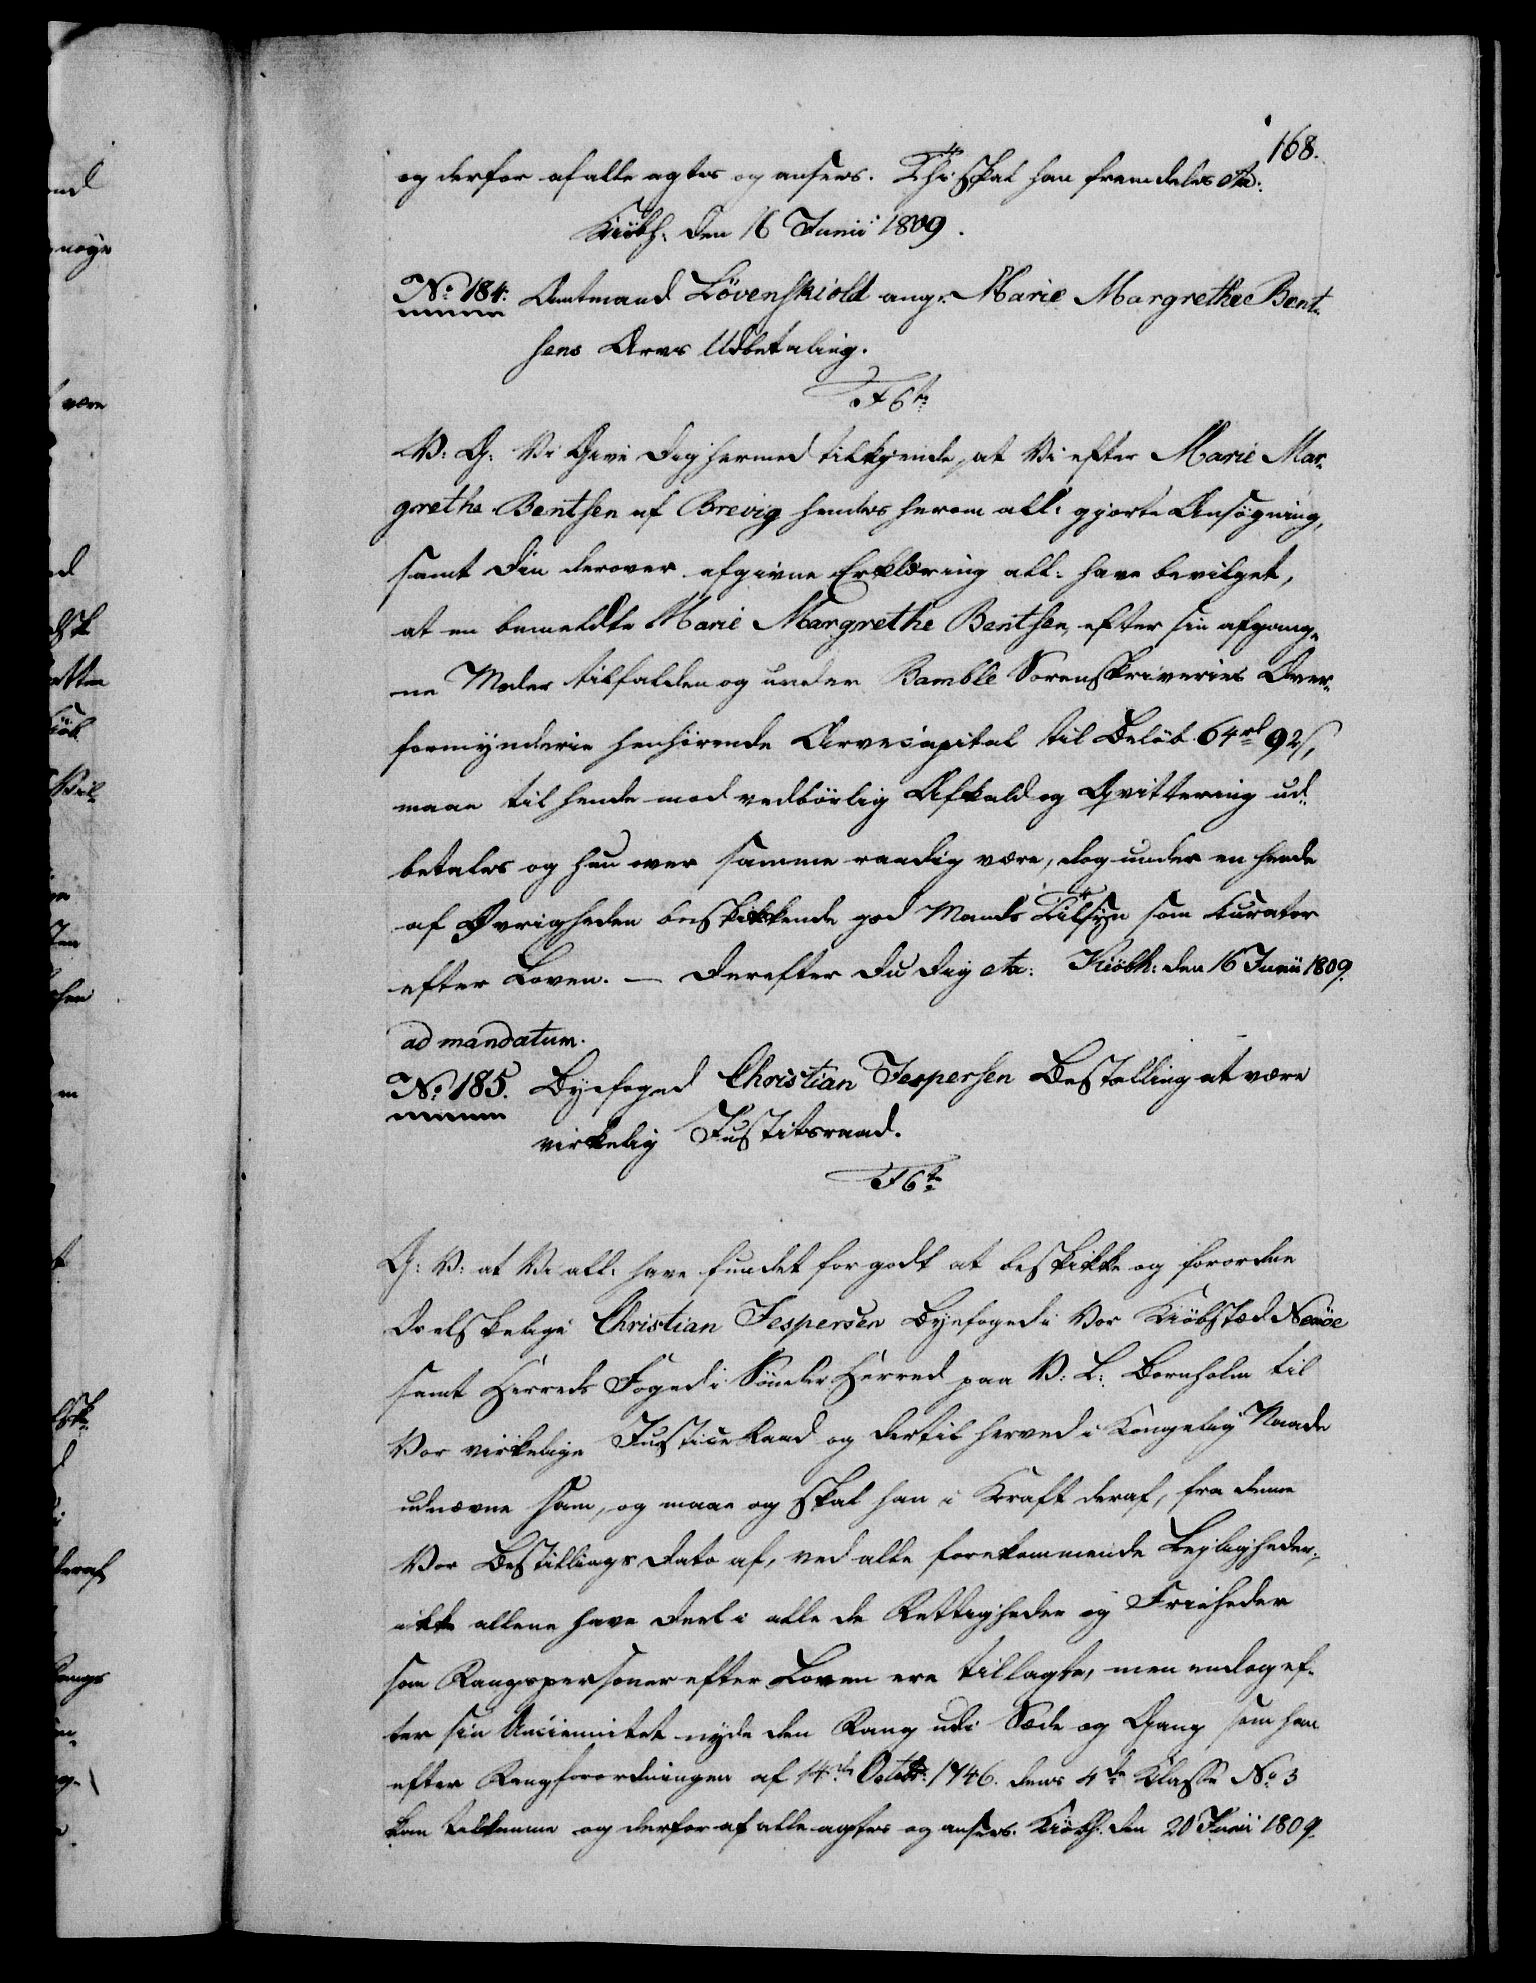 168.
og derfor af alle agtes og ansees. Thi skal han fremdeles etc:
Kiöbh. den 16 Junii 1809.
No. 184. Amtmand Lövenskiold angr. Marie Margrethe Bent-
sens Arvs Udbetaling.
F 6te
V: G: Vi Give Dig hermed tilkjende, at Vi efter Marie Mar-
grethe Bentsen af Brevig hendes herom all: gjorte Ansögning,
samt Din derover afgivne Erklæring all: have bevilget,
at en bemeldte Marie Margrethe Bentsen, efter sin afgang-
ne Moder tilfalden og under Bamble Sorenskriveries Over-
formynderie henhörende Arvecapital til Belöb 64 rd 92 s,
maae til hende mod vedbörlig Afkald og Qvittering ud-
betales og hun over samme raadig være, dog under en hende
af Øvrigheden beskikkende god Mands Tilsyn som Kurator
efter Loven. — Derefter Du Dig etc: Kiöbh: den 16 Junii 1809.
ad mandatum.
No. 185. Byefoged Christian Jespersen Bestalling at være
virkelig Justitsraad.
F 6te
G: V: at Vi all: have fundet for godt at beskikke og forordne
Os elskelige Christian Jespersen Byefoged i Vor Kiöbstæd Nexöe
samt Herreds Foged i Sönder Herred paa V: L: Bornholm til
Vor virkelige Justice Raad og dertil herved i Kongelig Naade
udnævne ham, og maae og skal han i Kraft deraf, fra denne
Vor Bestallings Dato af, ved alle forekommende Lejligheder,
ikke allene have Deel i alle de Rettigheder og Friheder
som Rangspersoner efter Loven ere tillagte, men endog ef-
ter sin Anciennitet nyde den Rang udi Sæde og Gang som ham
efter Rangforordningen af 14de Octobr: 1746. dens 4de Klasse No 3
kan tilkomme og derfor af alle agtes og ansees. Kiöbh. den 20 Junii 1809.